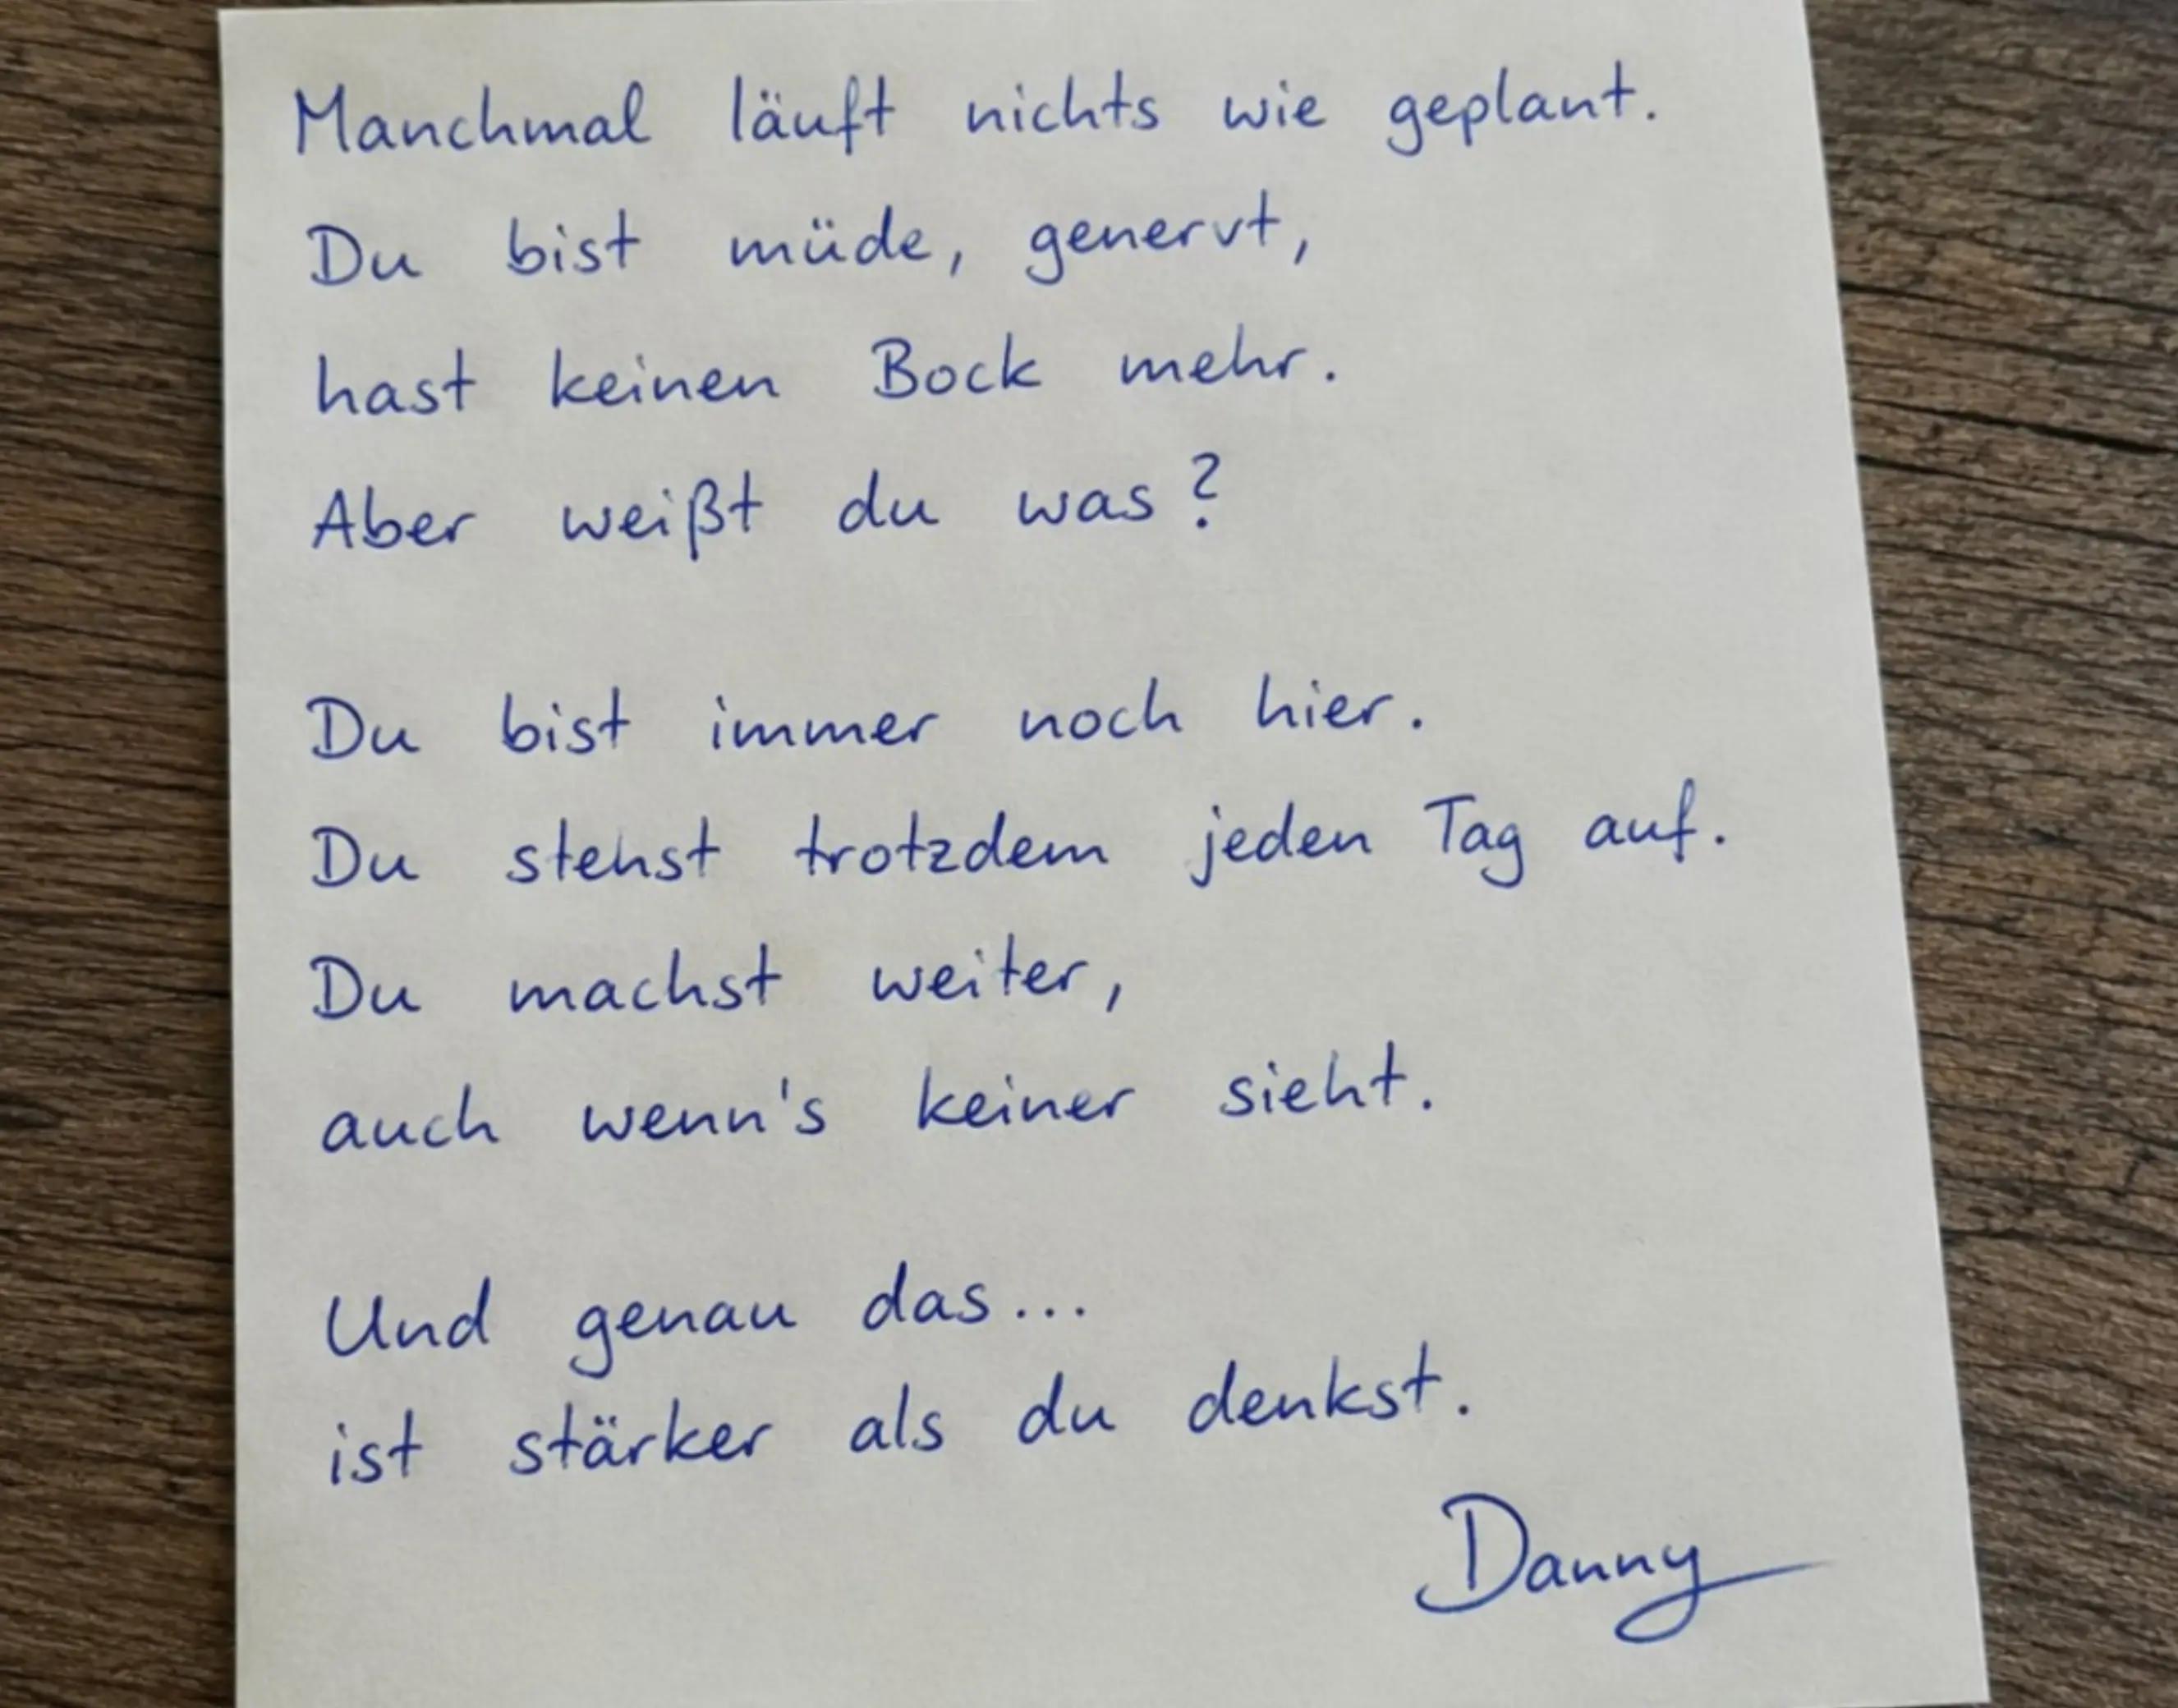 Manchmal läuft nichts wie geplant.
Du bist müde, genervt,
hast keinen Bock mehr.
Aber weißt du was?
Du bist immer noch hier.
Du stehst trotzdem jeden Tag auf.
Du machst weiter,
auch wenn's keiner sieht.
Und genau das...
ist stärker als du denkst.
Danny